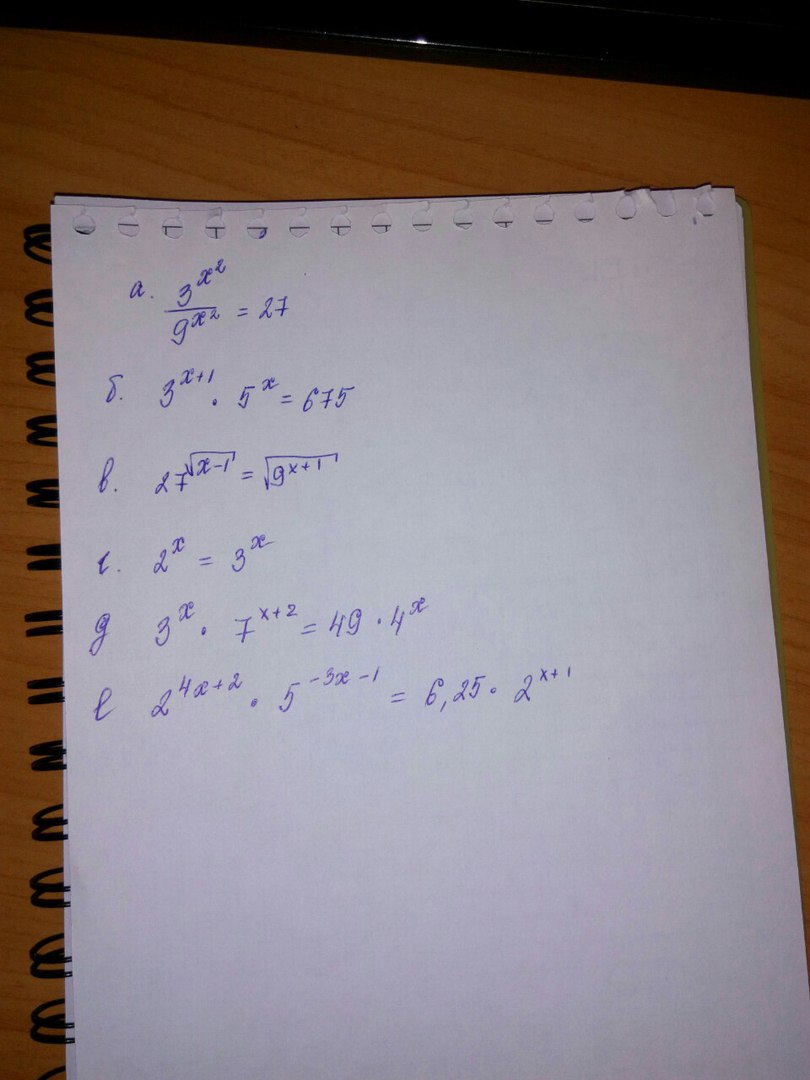 а. 3^{x^2} / 9^{x^2} = 27
б. 3^{x+1} · 5^x = 675
в. 27^{√(x-1)} = √(9^{x+1})
г. 2^x = 3^x
д 3^x · 7^{x+2} = 49 · 4^x
е 2^{4x+2} · 5^{-3x-1} = 6,25 · 2^{x+1}